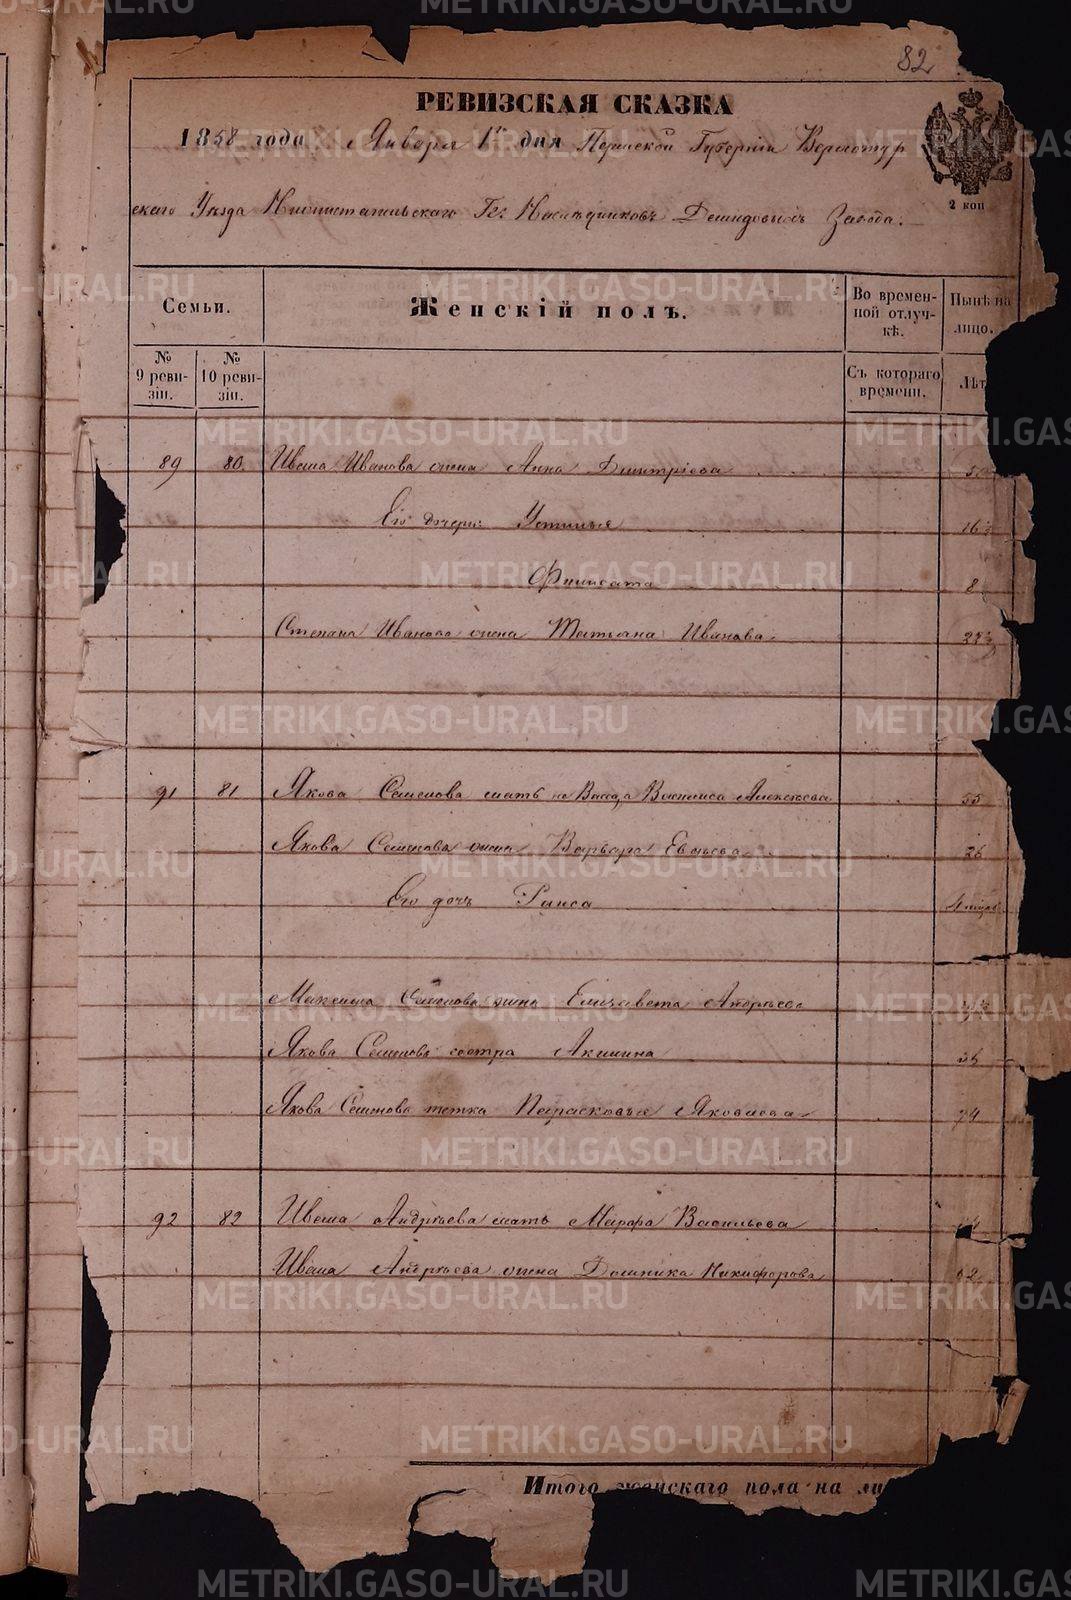 82
РЕВИЗСКАЯ СКАЗКА
1858 года Января 1го дня Пермской Губерніи Верхотур
скаго Уѣзда Нижнетагильскаго Гг. Наслѣдниковъ Демидовыхъ Завода.
2 коп
Семьи.
Женскій полъ.
Во времен-
ной отлуч-
кѣ.
Нынѣ на
лицо.
№
9 реви-
зіи.
№
10 реви-
зіи.
Съ котораго
времени.
Лѣт
89 80 Ивана Иванова жена Анна Дмитріева
Его дочери: Устинья 16
Фииисата 8
Степана Иванова жена Татьяна Иванова 22
91 81 Якова Семенова мать Василиса Алексѣева 55
Якова Семенова жена Варвара Евсѣева 26
Его дочь Раиса 4
Максима Семенова жена Елизавета Андрѣева
Якова Семенова сестра Акилина
Якова Семенова тетка Парасковья Яковлева 74
92 82 Ивана Андрѣева мать Марфа Васильева
Ивана Андрѣева жена Домника Никифорова
Итого женскаго пола на ли
METRIKI.GASO-URAL.RU